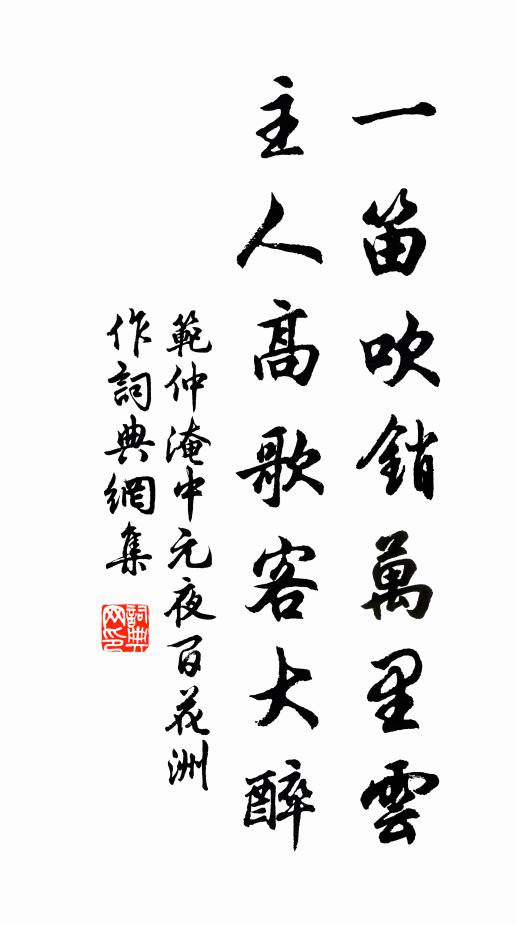 一笛吹銷萬里雲
主人高歌客大醉
範仲淹中元夜百花洲
作詞典網集
詞典
网印